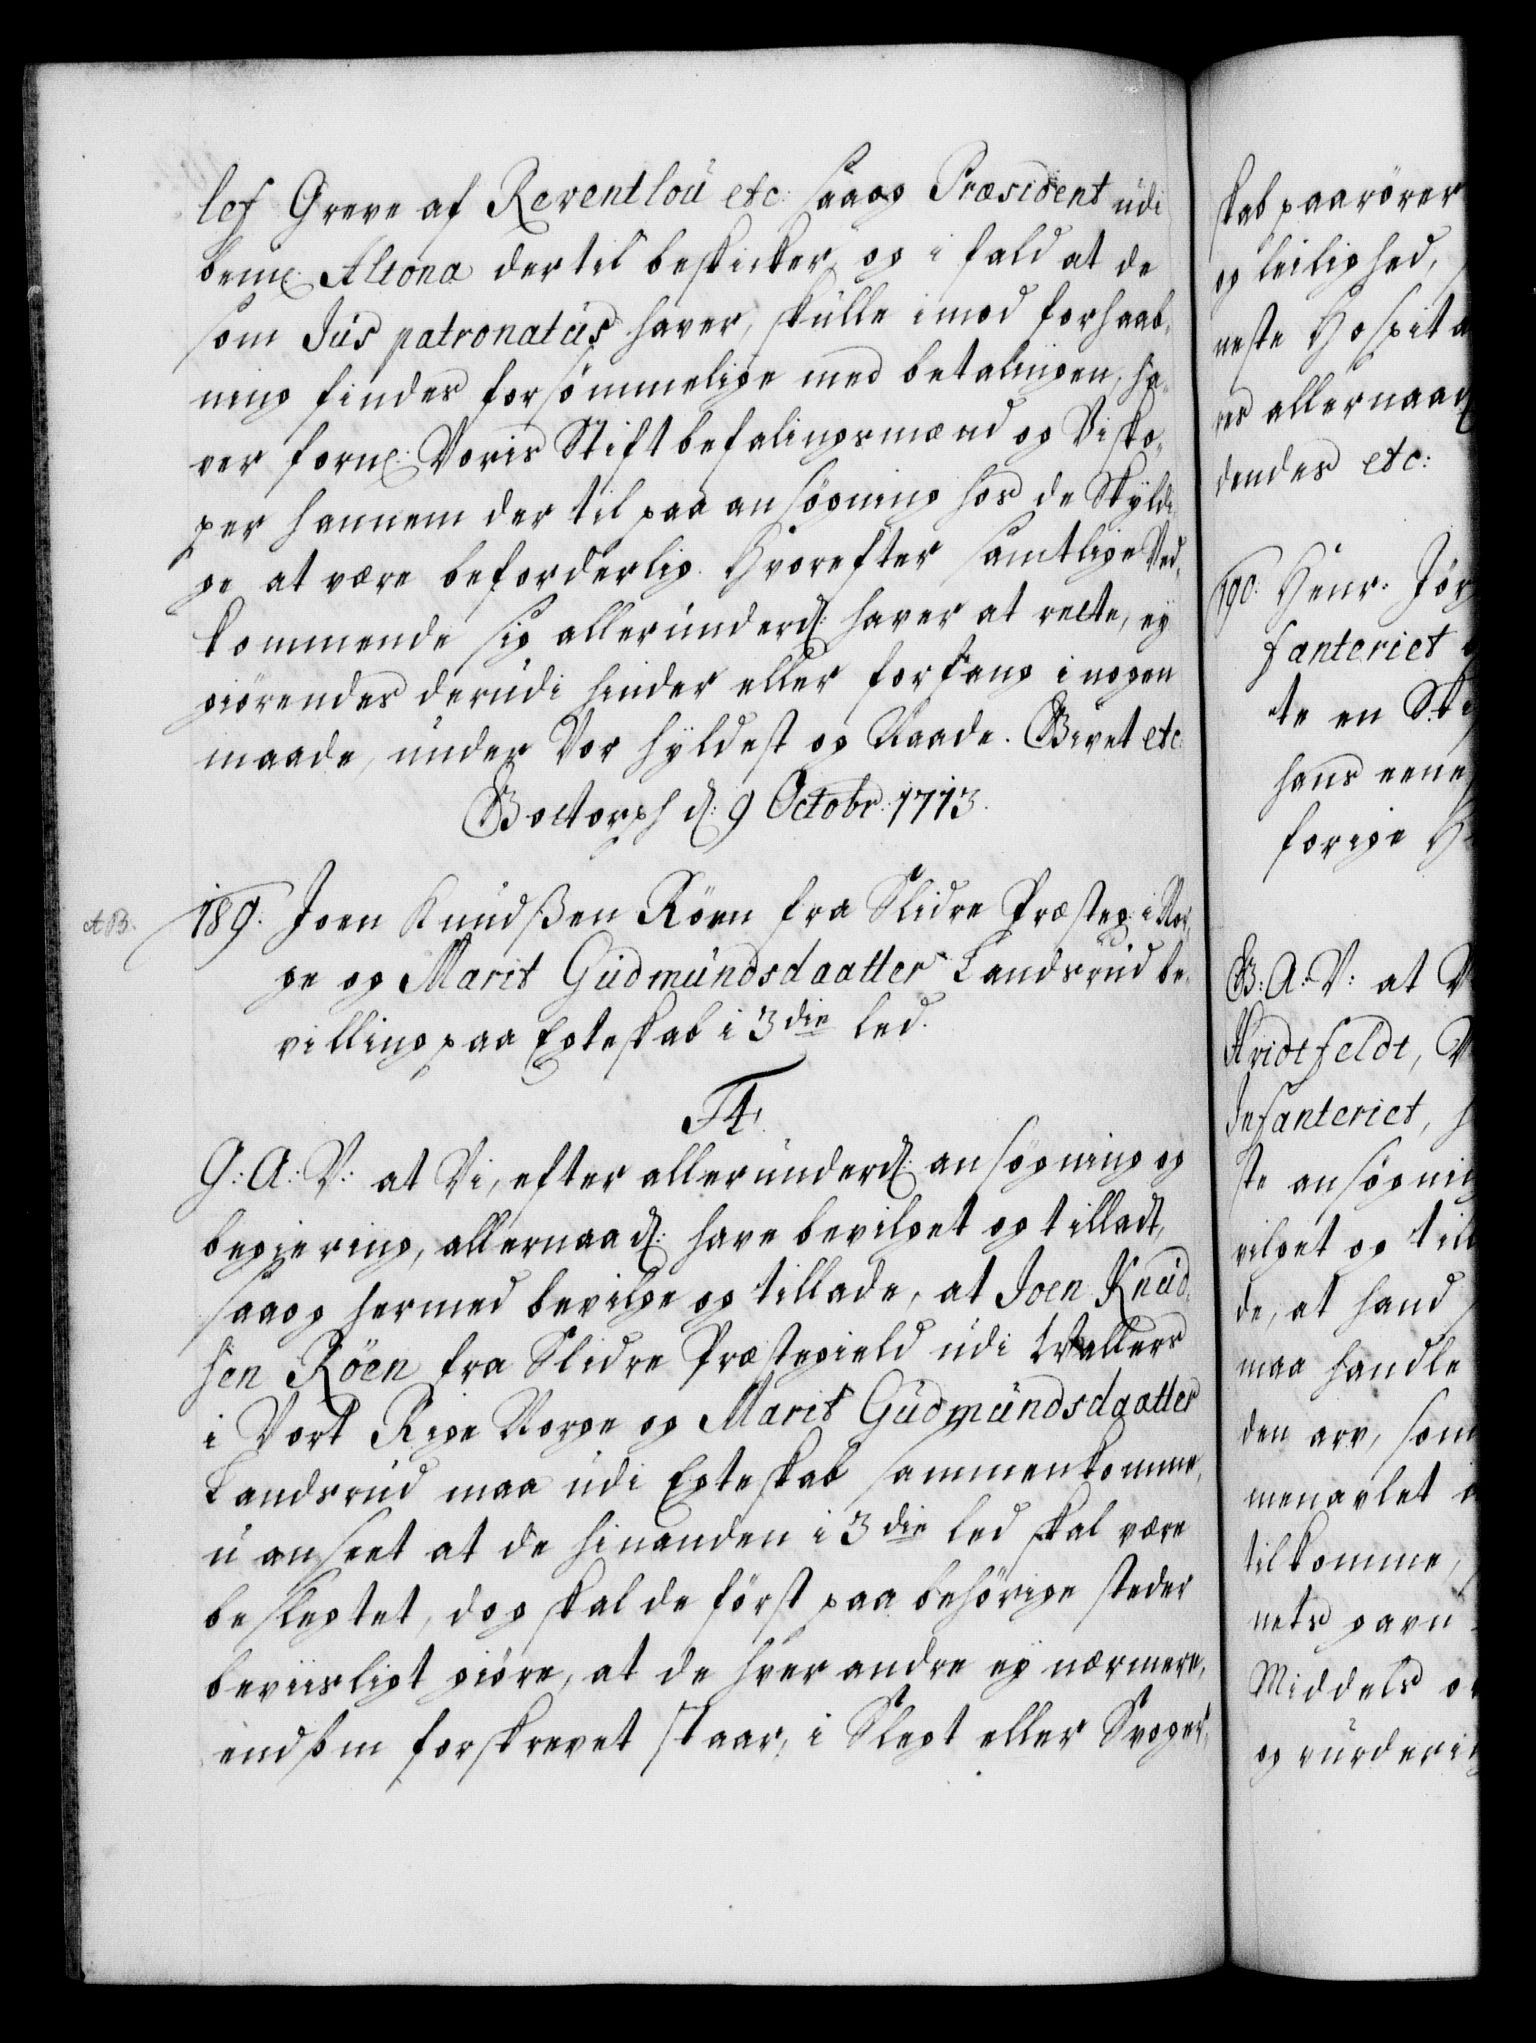 lef Greve af Reventlou etc: saaog Præsident udi
bemte: Altona dertil beskicker, og i fald at de
som Jus patronatus haver, skulle imod forhaab-
ning findes forsømmelige med betalingen, ha-
ver forne: Voris Stiftbefalingsmænd og Visko-
per hannem der til paa ansøgning hos de Skyldi-
ge at være beforderlig. Hvorefter samtlige Ved-
kommende sig allerunderd: haver at rette, ey
giørendes derudi hinder eller forfang i nogen
maade, under Vor hyldest og Naade. Givet etc:
Gottorph d: 9 Octobr: 1713.
A B.
189. Joen Knudssen Röen fra Slidre Præsteg: i Nor-
ge og Marit Gudmundsdaatter Landsrud be-
villing paa Egteskab i 3die led.
F4.
G: A: V: at Vi, efter allerunderd: ansøgning og
begiering, allernaad: have bevilget og tilladt,
saaog hermed bevilge og tillade, at Joen Knud-
sen Röen fra Slidre Præstegield udi Wallers
i Vort Rige Norge og Marit Gudmundsdaatter
Landsrud maa udi Egteskab sammenkomme,
u anseet at de hinanden i 3die led skal være
beslegtet, dog skal de först paa behörige steder
beviisligt giøre, at de hver andre ey nærmere,
end som forskrevet staar, i Slegt eller Svoger-
skab paarörer
og leilighed,
neste Hospita
res allernaad
dendes etc:
190. Henr: Jör
fanteriet
te en Ski
hans eene
forige H
G: A: V: at V
Hvidtfeldt, V
Infanteriet, h
ste ansøgnin
vilget og till
de, at hand
maa handle
den arv, som
menavlet
tilkomme,
nets gavn
Middels o
og vurderin